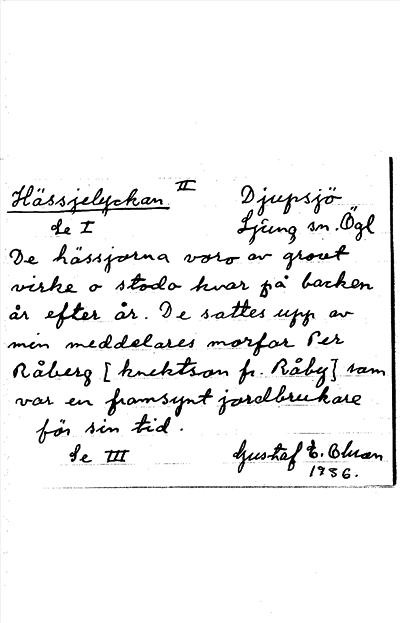 Hässjelyckan II Djupsjö
Se I Ljung sn. Ögl
De hässjorna voro av grovt
virke o stodo kvar på backen
år efter år. De sattes upp av
min meddelares morfar Per
Råberg [knektson fr. Råby] som
var en framsynt jordbrukare
för sin tid.
Se III Gustaf E. Olsson
1986.